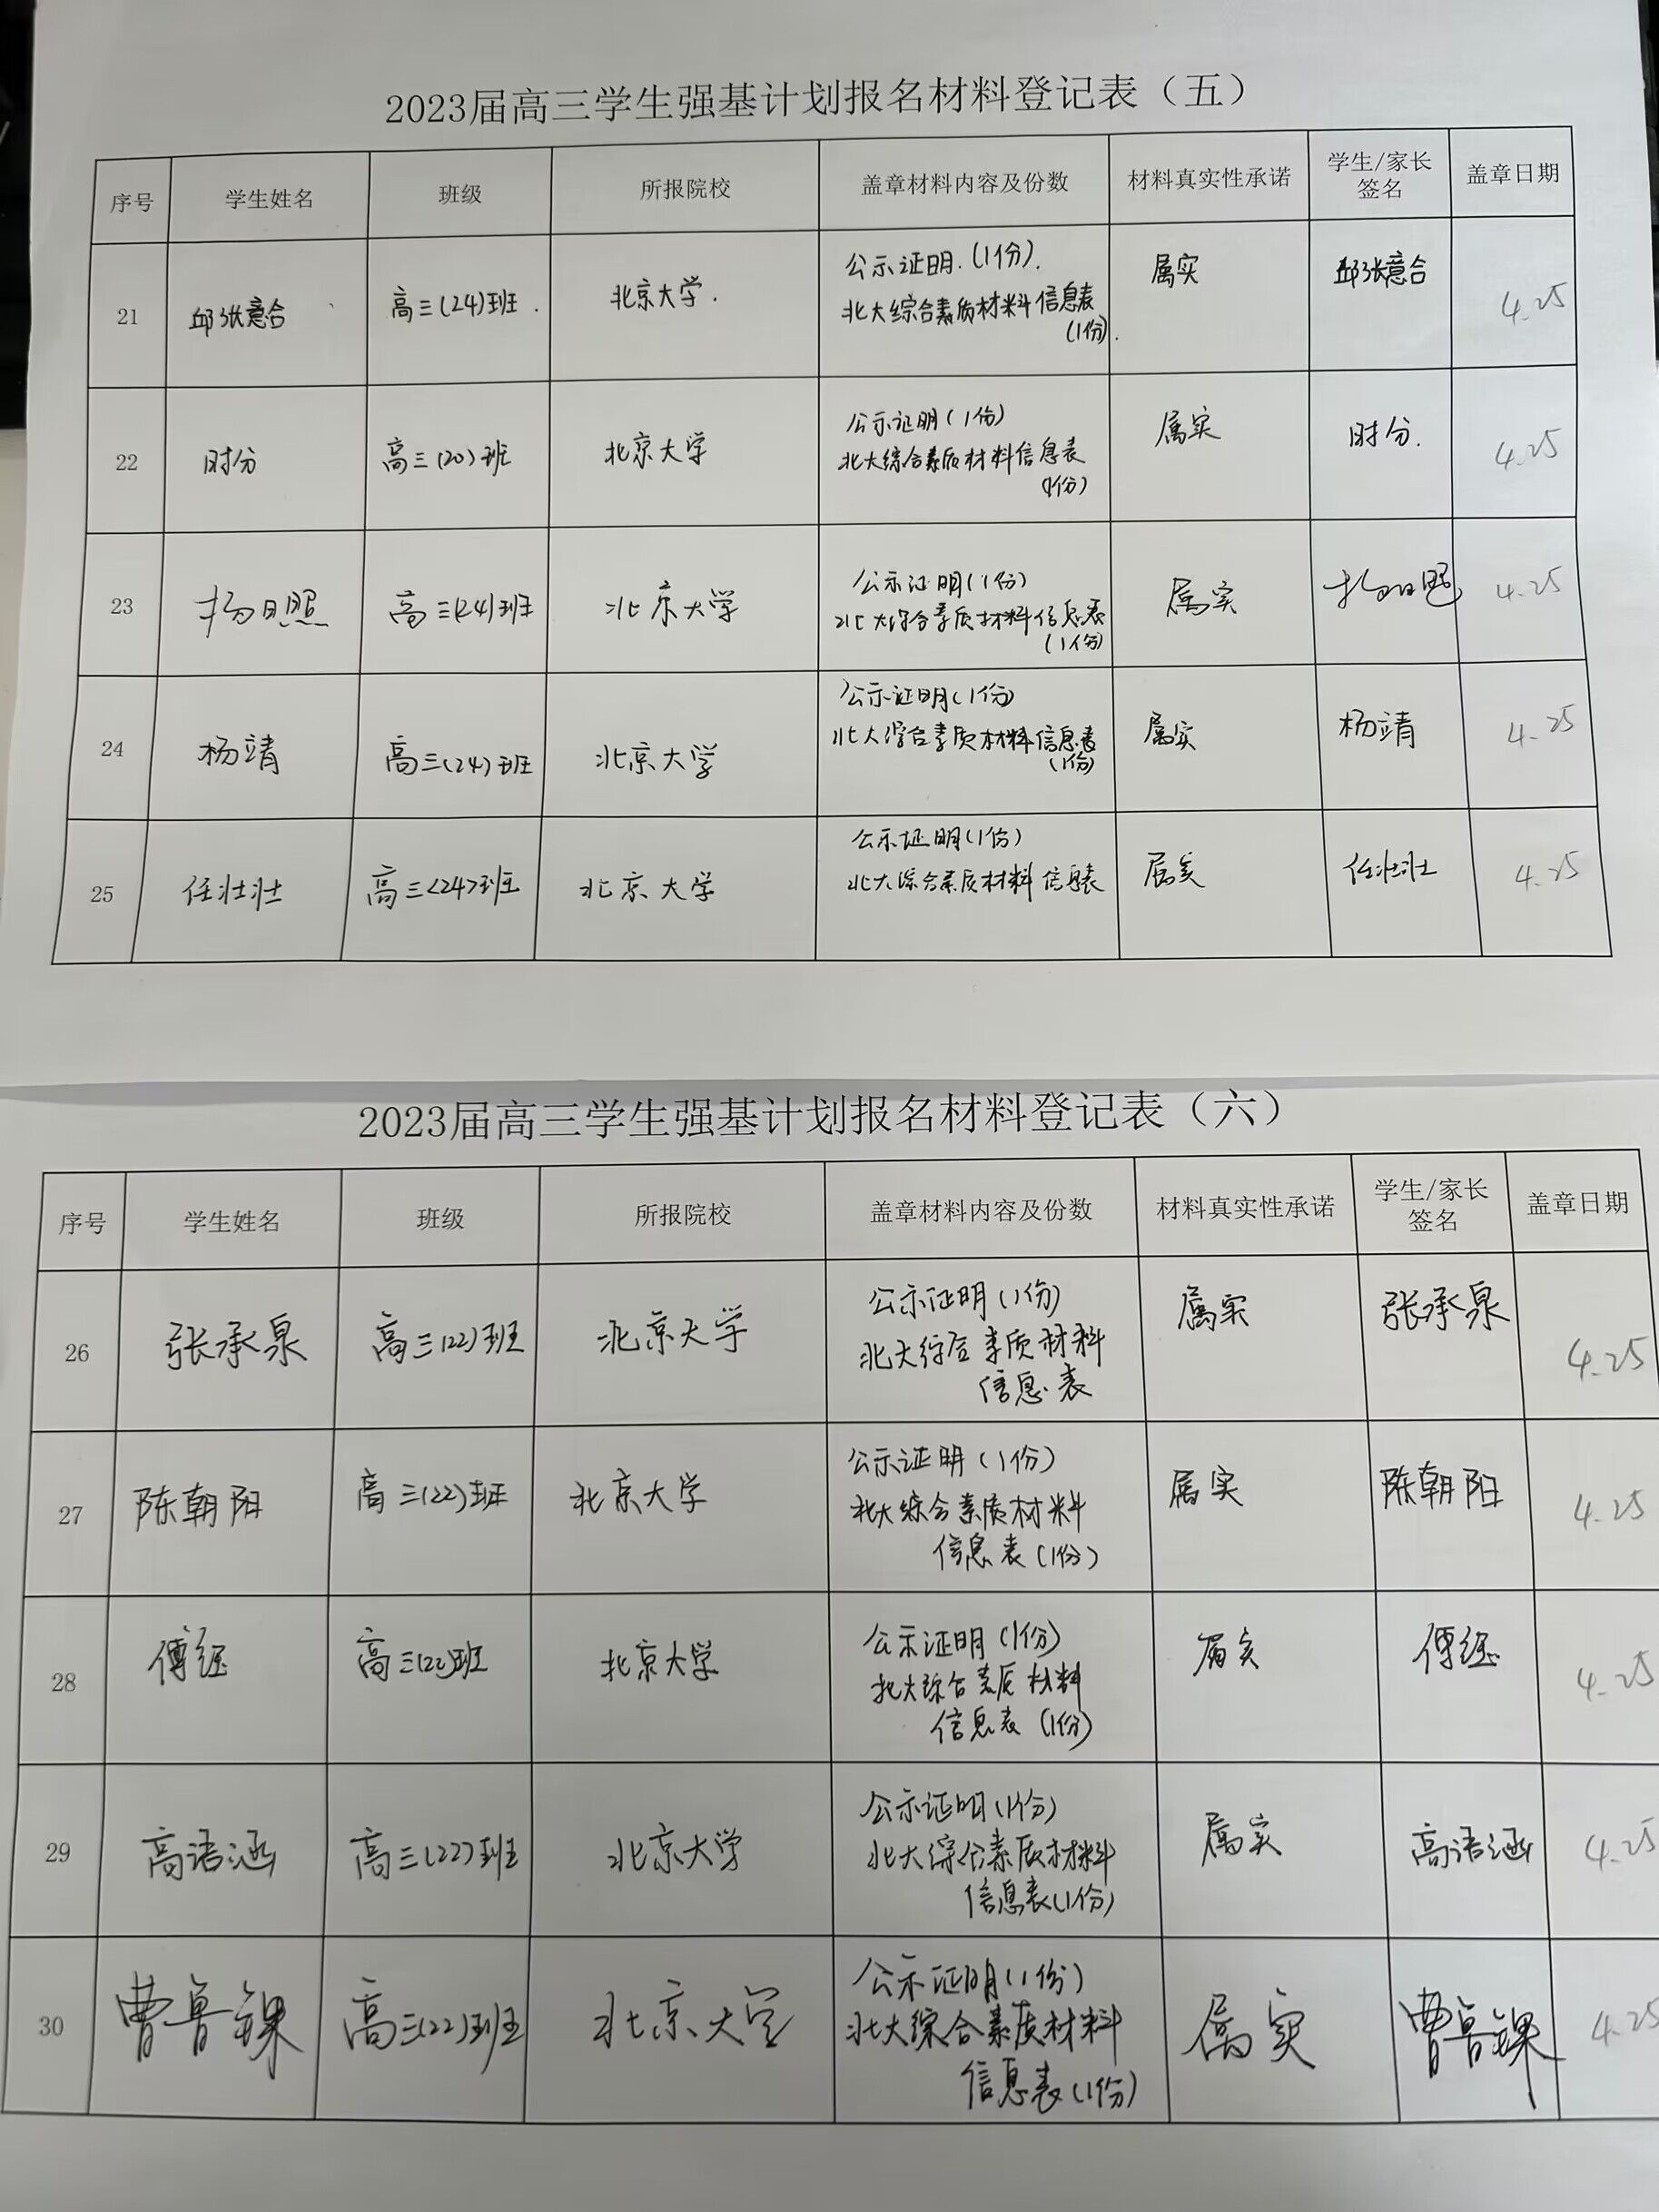 2023届高三学生强基计划报名材料登记表（五）
序号 学生姓名 班级 所报院校 盖章材料内容及份数 材料真实性承诺 学生/家长签名 盖章日期
21 邱张意合 高三(24)班. 北京大学. 公示证明.(1份). 属实 邱张意合 4.25
北大综合素质材料信息表
(1份).
22 时分 高三(20)班 北京大学 公示证明(1份) 属实 时分. 4.25
北大综合素质材料信息表
(1份)
23 杨日照 高三(24)班 北京大学 公示证明(1份) 属实 杨日照 4.25
北大综合素质材料信息表
(1份)
24 杨靖 高三(24)班 北京大学 公示证明(1份) 属实 杨靖 4.25
北大综合素质材料信息表
(1份)
25 任壮壮 高三<24>班 北京大学 公示证明(1份) 属实 任壮壮 4.25
北大综合素质材料信息表
2023届高三学生强基计划报名材料登记表（六）
序号 学生姓名 班级 所报院校 盖章材料内容及份数 材料真实性承诺 学生/家长签名 盖章日期
26 张承泉 高三(22)班 北京大学 公示证明(1份) 属实 张承泉 4.25
北大综合素质材料
信息表
27 陈朝阳 高三(22)班 北京大学 公示证明(1份) 属实 陈朝阳 4.25
北大综合素质材料
信息表(1份)
28 傅 高三(22)班 北京大学 公示证明(1份) 属实 傅 4.25
北大综合素质材料
信息表(1份)
29 高语涵 高三(22)班 北京大学 公示证明(1份) 属实 高语涵 4.25
北大综合素质材料
信息表(1份)
30 曹鲁 高三(22)班 北京大学 公示证明(1份) 属实 曹鲁 4.25
北大综合素质材料
信息表(1份)